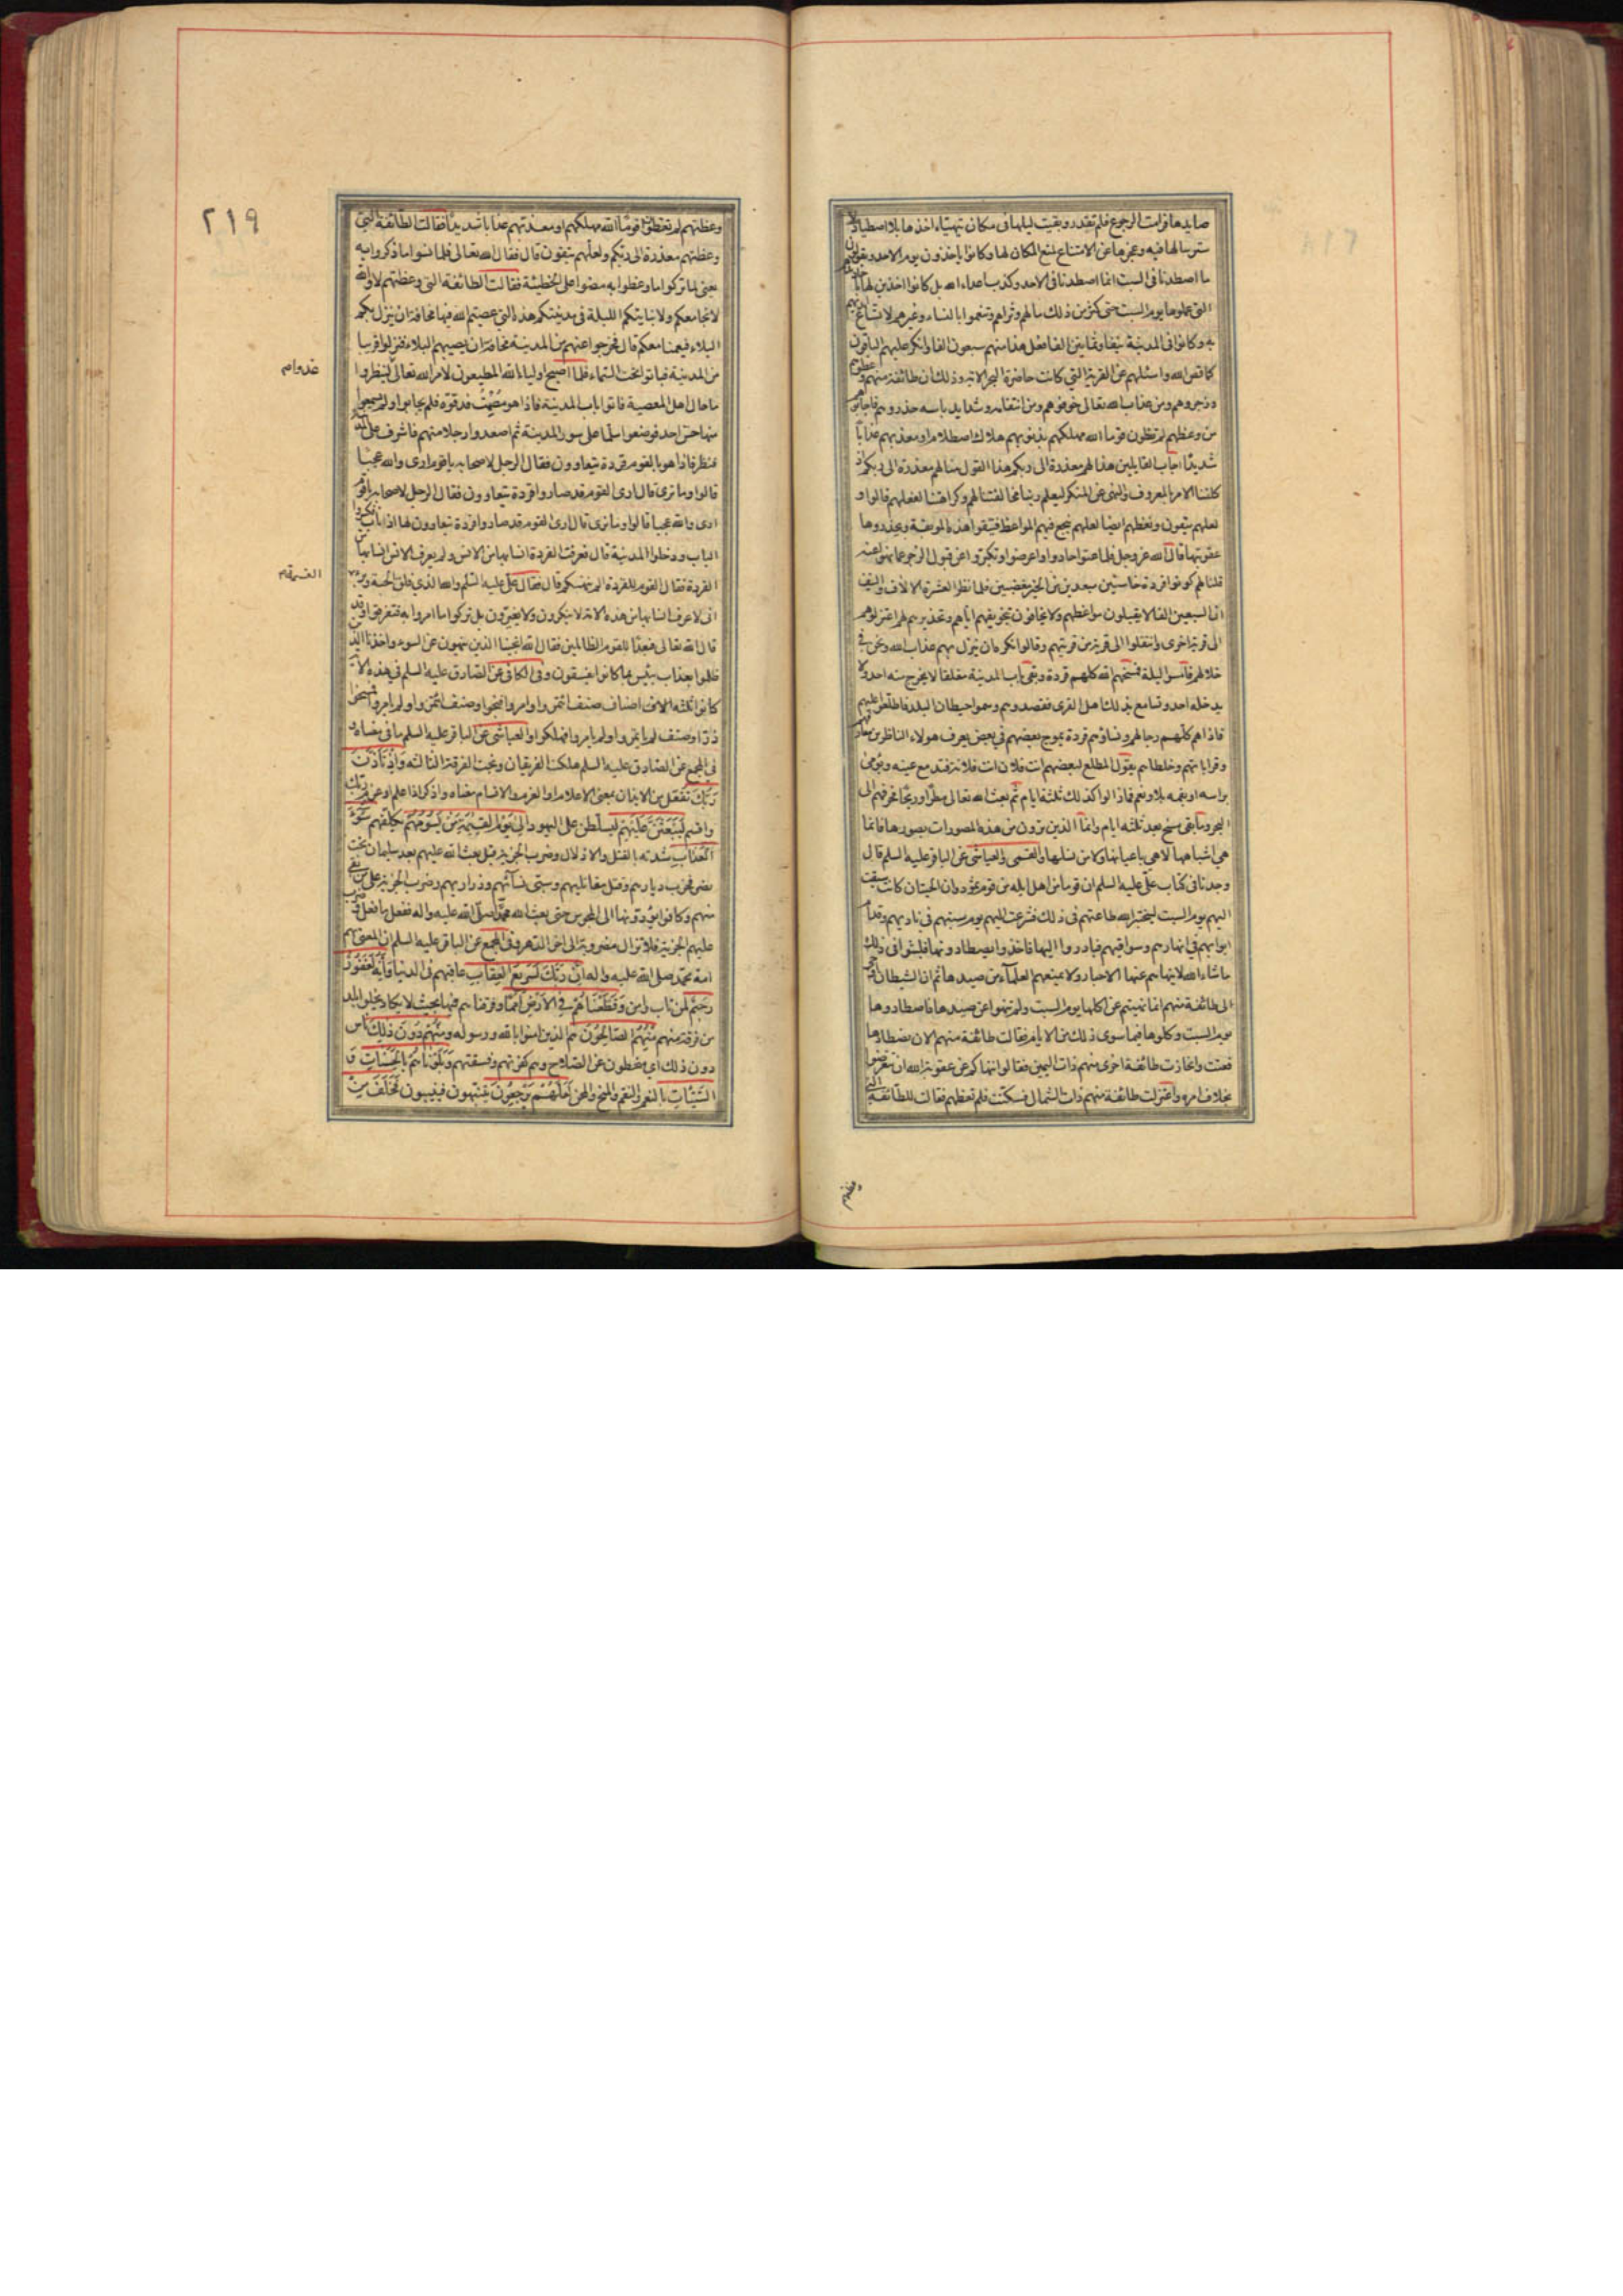 صايدها فرامت الرجوع فلم تقدر وبقيت ليلها في مكان تهيئاء اخذها بلا اصطياد لا
سترسالها فيه وعجزها عن الامتناع لمنع المكان لها وكانوا ياخذون يوم الاحد ويقولون
ما اصطدنا في السبت انما اصطدنا في الاحد وكذب اعداء الله بل كانوا اخذين لها
التي عملوها يوم السبت حتى كثر من ذلك مالهم وثراهم وتنعموا بالنساء وغيرهم لاتساع
به وكانوا في المدينة نيفا وثمانين الفا فعل هذا منهم سبعون الفا وانكر عليهم الباقون
كما قص الله واسئلهم عن القرية التي كانت حاضرة البحر الاية وذلك ان طائفة منهم وعظوهم
وزجروهم ومن عذاب الله تعالى خوفوهم ومن انتقامه وشدايد باسه حذروهم فاجابوهم
من وعظهم لم تعظون قوما الله مهلكهم بذنوبهم هلاك اصطلام او معذبهم عذابا
شديدا اجاب القايلين هذا لهم معذرة الى ربكم هذا القول منا لهم معذرة الى ربكم اذ
كلفنا الامر بالمعروف والنهي عن المنكر ليعلم ربنا مخالفتنا لهم وكراهتنا لفعلهم قالوا و
لعلهم يتقون ونعظهم ايضا لعلهم ينجع فيهم المواعظ فيتقوا هذه الموبقة ويحذروها
عقوبتها قال الله عز وجل فلما عتوا حادوا واعرضوا وتكبروا عن قبول الزجر عما نهوا عنه
قلنا لهم كونوا قردة خاسئين مبعدين من الخير مبغضين فلما نظر العشرة الالاف والنيف
ان السبعين الفا لا يقبلون مواعظهم ولا يخافون تخويفهم اياهم وتحذيرهم لهم اعتزلوهم
الى قرية اخرى وانتقلوا الى قرية من قريتهم وقالوا نكره ان ينزل بهم عذاب الله ونحن في
خلالهم فامسوا ليلة فمسخهم الله كلهم قردة وبقي باب المدينة مغلقا لا يخرج منه احد ولا
يدخله احد وتسامع بذلك اهل القرى فقصدوهم وسموا حيطان البلد فاطلعوا عليهم
فاذا هم كلهم رجالهم ونساؤهم قردة يموج بعضهم في بعض يعرف هؤلاء الناظرين معارفهم
وقراباتهم وخلطاءهم يقول المطلع لبعضهم انت فلان انت فلانة فتدمع عينه ويؤمي
براسه او بفمه بلا ونعم فما زالوا كذلك ثلثة ايام ثم بعث الله تعالى مطرا وريحا فجرفهم الى
البحر وما بقي مسخ بعد ثلثة ايام وانما الذين ترون من هذه المصورات بصورها فانما
هي اشباهها لا هي باعيانها ولا من نسلها والقمي والعياشي عن الباقر عليه السلم قال
وجدنا في كتاب علي عليه السلم ان قوما من اهل ايلة من قوم ثمود وان الحيتان كانت سبقت
اليهم يوم السبت ليختبر الله طاعتهم في ذلك فشرعت اليهم يوم سبتهم في ناديهم وقدام
ابوابهم في انهارهم وسواقيهم فبادروا اليها فاخذوا يصطادونها فلبثوا في ذلك
ما شاء الله لا ينهاهم عنها الاحبار ولا يمنعهم العلماء من صيدها ثم ان الشيطان اوحى
الى طائفة منهم انما نهيتم عن اكلها يوم السبت ولم تنهوا عن صيدها فاصطادوها
يوم السبت وكلوها فيما سوى ذلك من الايام فقالت طائفة منهم الان نصطادها
فعتت وانحازت طائفة اخرى منهم ذات اليمين فقالوا ننهاكم عن عقوبة الله ان تتعرضوا
بخلاف امره واعتزلت طائفة منهم ذات الشمال فسكتت فلم تعظهم فقالت للطائفة التي
وعظتهم
٢١٩
وعظتهم لم تعظون قوما الله مهلكهم او معذبهم عذابا شديدا فقالت الطائفة التي
وعظتهم معذرة الى ربكم ولعلهم يتقون قال فقال الله تعالى فلما نسوا ما ذكروا به
يعني لما تركوا ما وعظوا به مضوا على الخطيئة فقالت الطائفة التي وعظتهم لا والله
لا نجامعكم ولا نبايتكم الليلة في مدينتكم هذه التي عصيتم الله فيها مخافة ان ينزل بكم
البلاء فيعمنا معكم قال فخرجوا عنهم من المدينة مخافة ان يصيبهم البلاء فنزلوا قريبا
من المدينة فباتوا تحت السماء فلما اصبح اولياء الله المطيعون لامر الله تعالى لينظروا
ما حال اهل المعصية فاتوا باب المدينة فاذا هو مصمت فدقوه فلم يجابوا ولم يسمعوا
منها حس احد فوضعوا سلما على سور المدينة ثم اصعدوا رجلا منهم فاشرف على المدينة
فنظر فاذا هو بالقوم قردة يتعاوون فقال الرجل لاصحابه يا قوم ارى والله عجبا
قالوا وما ترى قال ارى القوم قد صاروا قردة يتعاوون فقال الرجل لاصحابه يا قوم
ارى والله عجبا قالوا وما ترى قال ارى القوم قد صاروا قردة يتعاوون لها اذناب فكسروا
الباب ودخلوا المدينة قال فعرفت القردة انسابها من الانس ولم يعرف الانس انسابها من
القردة فقال القوم للقردة الم ننهكم قال فقال علي عليه السلم والله الذي فلق الحبة وبرء
اني لاعرف انسابها من هذه الامة لا ينكرون ولا يغيرون بل تركوا ما امروا به فتفرقوا وقد
قال الله تعالى فبعدا للقوم الظالمين فقال الله انجينا الذين ينهون عن السوء واخذنا الذين
ظلموا بعذاب بئيس بما كانوا يفسقون وفي الكافي عن الصادق عليه السلم في هذه الاية
كانوا ثلثة اصناف صنف ائتمروا وامروا فنجوا وصنف ائتمروا ولم يامروا فمسخوا
ذرا وصنف لم ياتمروا ولم يامروا فهلكوا والعياشي عن الباقر عليه السلم ما في معناه و
في المجمع عن الصادق عليه السلم هلكت الفرقتان ونجت الفرقة الثالثة وَاِذْ تَاَذَّنَ
رَبُّكَ تفعل من الايذان بمعنى الاعلام او العزم والاقسام معناه واذكر اذا علم او عزم ربك
واقسم لَيَبْعَثَنَّ عَلَيْهِمْ ليسلطن على اليهود اِلى يَوْمِ الْقِيٰمَةِ مَنْ يَسُومُهُمْ يكلفهم سُوءَ
الْعَذَابِ شدته بالقتل والاذلال وضرب الجزية قيل بعث الله عليهم بعد سليمان بخت
نصر فخرب ديارهم وقتل مقاتليهم وسبى نسائهم وذراريهم وضرب الجزية على من بقي
منهم وكانوا يؤدونها الى المجوس حتى بعث الله محمدا صلى الله عليه واله ففعل ما فعل وضرب
عليهم الجزية فلا تزال مضروبة الى اخر الدهر وفي المجمع عن الباقر عليه السلم ان المعني بهم
امة محمد صلى الله عليه واله اِنَّ رَبَّكَ لَسَرِيعُ الْعِقَابِ عاقبهم في الدنيا وَاِنَّهُ لَغَفُورٌ
رَحِيمٌ لمن تاب وامن وَقَطَّعْنَاهُمْ فِي الْاَرْضِ اُمَمًا وفرقناهم فيها بحيث لا يكاد يخلو بلد
من فرقة منهم مِنْهُمُ الصَّالِحُونَ هم الذين امنوا بالله ورسوله وَمِنْهُمْ دُونَ ذٰلِكَ ناس
دون ذلك اي منحطون عن الصلاح وهم كفرتهم وفسقتهم وَبَلَوْنَاهُمْ بِالْحَسَنَاتِ وَ
السَّيِّئَاتِ بالنعم والنقم والمنح والمحن لَعَلَّهُمْ يَرْجِعُونَ ينتبهون فينيبون فَخَلَفَ مِنْ
غدوا م